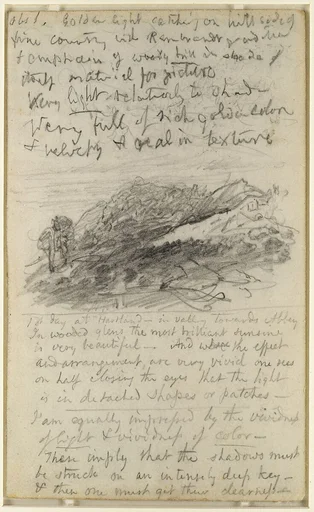 Golden light catching on hill side of
fine country with Rembrandt
& emphasis of woody hill in shade &
itself material for picture
Very light relatively to shade
Very full of rich golden color
& velvety & real in texture
To day at Hartland – in valley towards Abbey
In wooded glens the most brilliant sunshine
is very beautiful – And where the effect
and arrangement are very vivid one sees
on half closing the eyes that the light
is in detached shapes or patches –
I am equally impressed by the vividness
of light & vividness of color –
These imply that the shadows must
be struck on an intensely deep key –
& then one must get their clearness